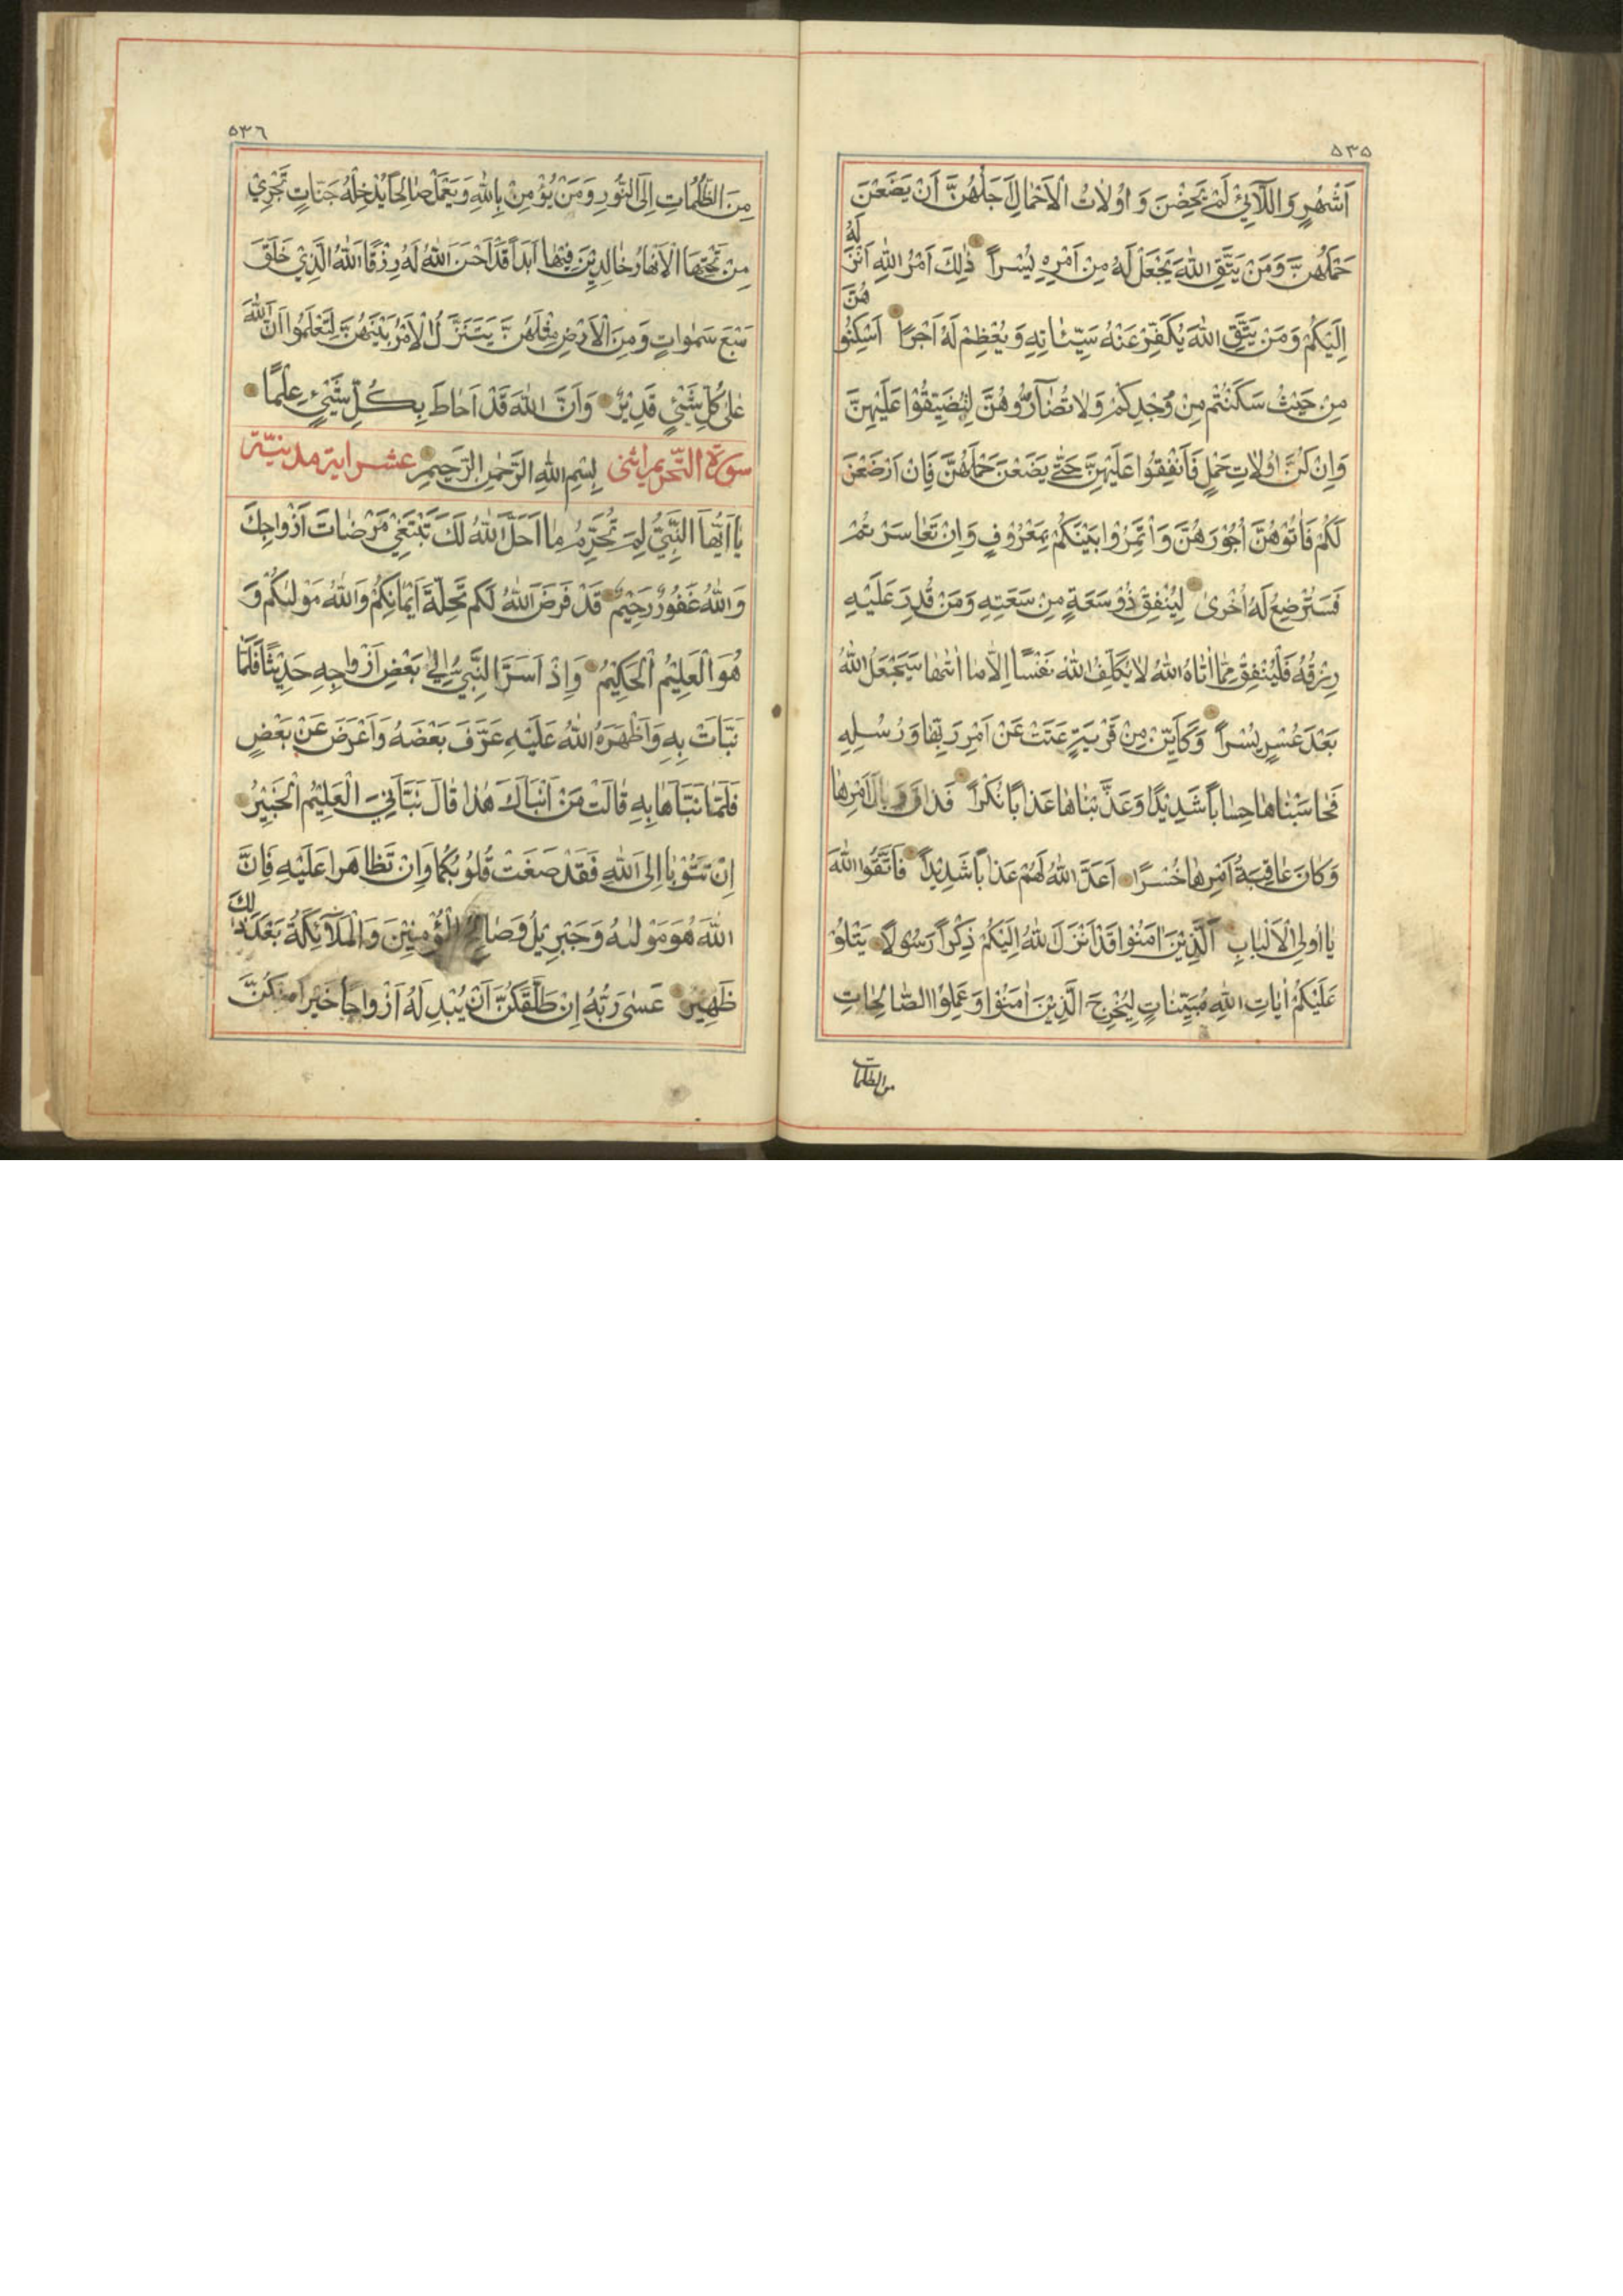 ٥٣٥
اَشْهُرٍ وَاللَّآئِيْ لَمْ يَحِضْنَ وَ اُوْلَاتُ الْاَحْمَالِ اَجَلُهُنَّ اَنْ يَضَعْنَ
حَمْلَهُنَّ وَمَنْ يَتَّقِ اللّٰهَ يَجْعَلْ لَهُ مِنْ اَمْرِهِ يُسْراً ذٰلِكَ اَمْرُ اللّٰهِ اَنْزَلَهُ
اِلَيْكُمْ وَمَنْ يَتَّقِ اللّٰهَ يُكَفِّرْ عَنْهُ سَيِّئَاتِهِ وَيُعْظِمْ لَهُ اَجْراً اَسْكِنُوهُنَّ
مِنْ حَيْثُ سَكَنْتُمْ مِنْ وُجْدِكُمْ وَلَا تُضَآرُّوهُنَّ لِتُضَيِّقُوْا عَلَيْهِنَّ
وَاِنْ كُنَّ اُوْلَاتِ حَمْلٍ فَاَنْفِقُوا عَلَيْهِنَّ حَتّٰى يَضَعْنَ حَمْلَهُنَّ فَاِنْ اَرْضَعْنَ
لَكُمْ فَاٰتُوْهُنَّ اُجُوْرَهُنَّ وَأْتَمِرُوْا بَيْنَكُمْ بِمَعْرُوْفٍ وَاِنْ تَعَاسَرْتُمْ
فَسَتُرْضِعُ لَهُ اُخْرٰى لِيُنْفِقْ ذُوْ سَعَةٍ مِنْ سَعَتِهِ وَمَنْ قُدِرَ عَلَيْهِ
رِزْقُهُ فَلْيُنْفِقْ مِمَّا اٰتَاهُ اللّٰهُ لَا يُكَلِّفُ اللّٰهُ نَفْسًا اِلَّا مَا اٰتٰهَا سَيَجْعَلُ اللّٰهُ
بَعْدَ عُسْرٍ يُسْراً وَكَاَيِّنْ مِنْ قَرْيَةٍ عَتَتْ عَنْ اَمْرِ رَبِّهَا وَرُسُلِهِ
فَحَاسَبْنَاهَا حِسَاباً شَدِيْدًا وَعَذَّبْنَاهَا عَذَابًا نُكْراً فَذَاقَتْ وَبَالَ اَمْرِهَا
وَكَانَ عَاقِبَةُ اَمْرِهَا خُسْرًا اَعَدَّ اللّٰهُ لَهُمْ عَذَاباً شَدِيْداً فَاتَّقُوا اللّٰهَ
يَا اُولِي الْاَلْبَابِ اَلَّذِيْنَ اٰمَنُوْا قَدْ اَنْزَلَ اللّٰهُ اِلَيْكُمْ ذِكْراً رَسُولًا يَتْلُوْ
عَلَيْكُمْ اٰيَاتِ اللّٰهِ مُبَيِّنَاتٍ لِيُخْرِجَ الَّذِيْنَ اٰمَنُوْا وَعَمِلُوا الصَّالِحَاتِ
من الظلمات
٥٣٦
مِنَ الظُّلُمَاتِ اِلَى النُّورِ وَمَنْ يُؤْمِنْ بِاللّٰهِ وَيَعْمَلْ صَالِحًا يُدْخِلْهُ جَنَّاتٍ تَجْرِيْ
مِنْ تَحْتِهَا الْاَنْهَارُ خَالِدِيْنَ فِيْهَا اَبَداً قَدْ اَحْسَنَ اللّٰهُ لَهُ رِزْقًا اَللّٰهُ الَّذِيْ خَلَقَ
سَبْعَ سَمٰوَاتٍ وَمِنَ الْاَرْضِ مِثْلَهُنَّ يَتَنَزَّلُ الْاَمْرُ بَيْنَهُنَّ لِتَعْلَمُوا اَنَّ اللّٰهَ
عَلٰى كُلِّ شَيْءٍ قَدِيْرٌ وَاَنَّ اللّٰهَ قَدْ اَحَاطَ بِكُلِّ شَيْءٍ عِلْمًا
سورة التّحريم اثنى بِسْمِ اللّٰهِ الرَّحْمٰنِ الرَّحِيمِ عشر اية مدنيّة
يَا اَيُّهَا النَّبِيُّ لِمَ تُحَرِّمُ مَا اَحَلَّ اللّٰهُ لَكَ تَبْتَغِيْ مَرْضَاتَ اَزْوَاجِكَ
وَاللّٰهُ غَفُورٌ رَحِيْمٌ قَدْ فَرَضَ اللّٰهُ لَكُمْ تَحِلَّةَ اَيْمَانِكُمْ وَاللّٰهُ مَوْلٰىكُمْ وَ
هُوَ الْعَلِيْمُ الْحَكِيْمُ وَاِذْ اَسَرَّ النَّبِيُّ اِلٰى بَعْضِ اَزْوَاجِهِ حَدِيْثًا فَلَمَّا
نَبَّاَتْ بِهِ وَاَظْهَرَهُ اللّٰهُ عَلَيْهِ عَرَّفَ بَعْضَهُ وَاَعْرَضَ عَنْ بَعْضٍ
فَلَمَّا نَبَّاَهَا بِهِ قَالَتْ مَنْ اَنْبَاَكَ هٰذَا قَالَ نَبَّاَنِيَ الْعَلِيْمُ الْخَبِيْرُ
اِنْ تَتُوْبَا اِلَى اللّٰهِ فَقَدْ صَغَتْ قُلُوْبُكُمَا وَاِنْ تَظَاهَرَا عَلَيْهِ فَاِنَّ
اللّٰهَ هُوَ مَوْلٰىهُ وَجَبْرِيْلُ وَصَالِحُ الْمُؤْمِنِيْنَ وَالْمَلَآئِكَةُ بَعْدَ ذٰلِكَ
ظَهِيْرٌ عَسٰى رَبُّهُ اِنْ طَلَّقَكُنَّ اَنْ يُبْدِلَهُ اَزْوَاجًا خَيْرًا مِنْكُنَّ